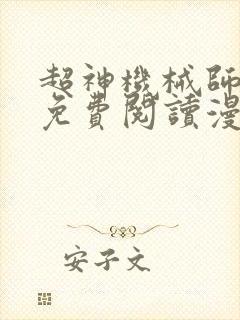 超神機械師
免費閱讀漫
安子文